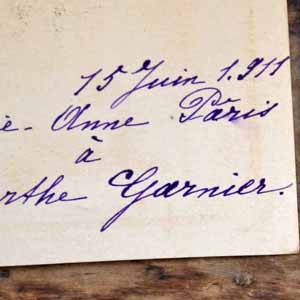 15 Juin 1.911
ie-Anne Pâris
à
arthe Garnier.